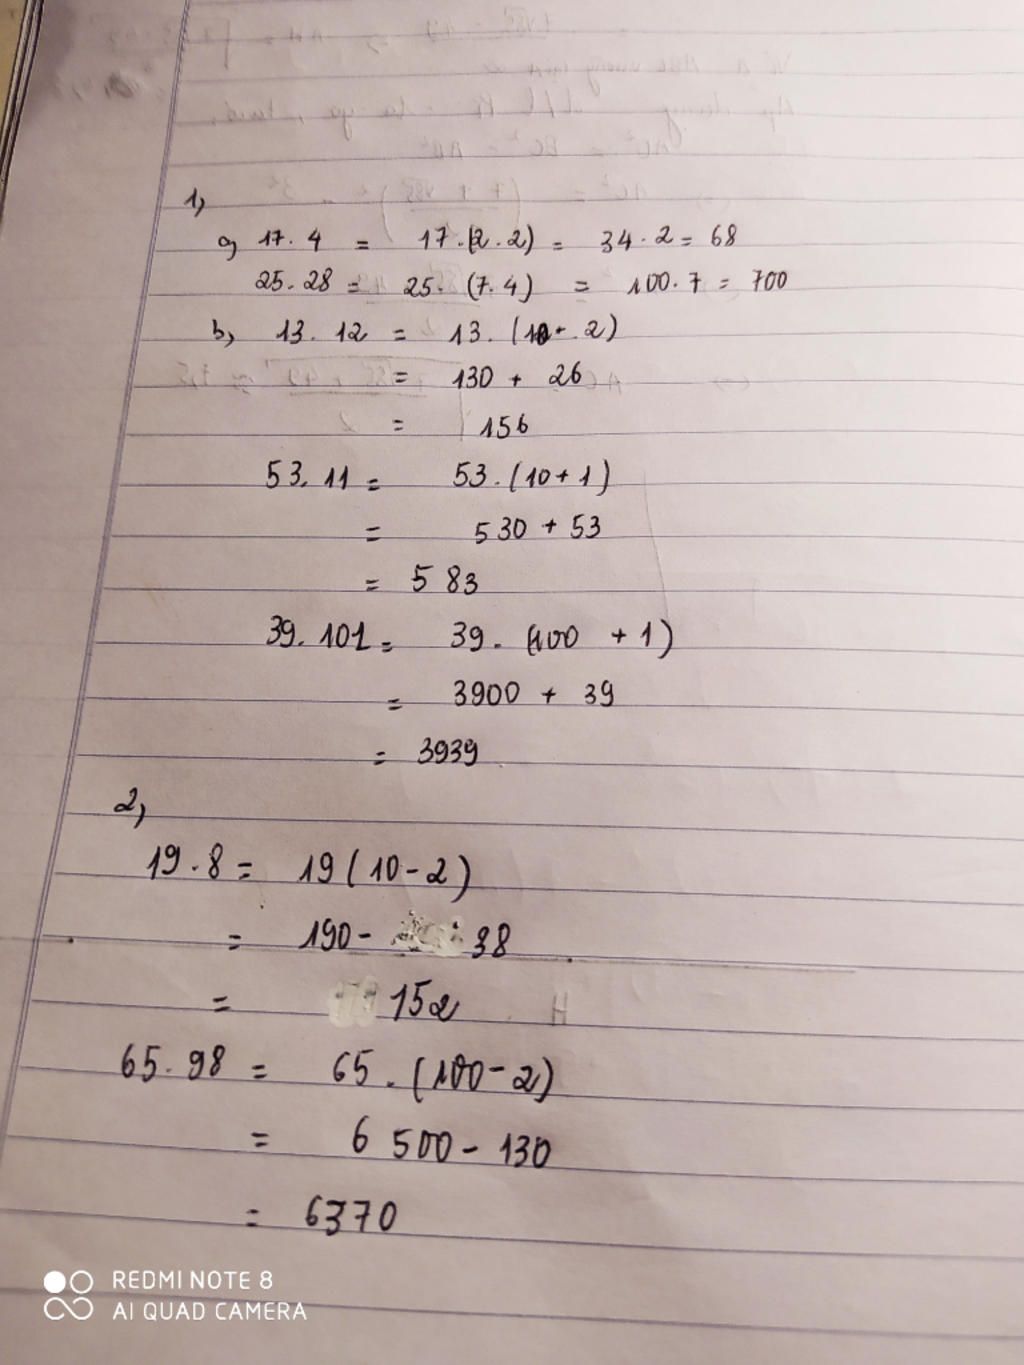 1,
a, 17. 4 = 17.(2. 2) = 34. 2 = 68
25. 28 = 25. (7. 4) = 100. 7 = 700
b, 13. 12 = 13. (10 + 2)
= 130 + 26
= 156
53. 11 = 53. (10 + 1)
= 530 + 53
= 583
39. 101 = 39. (100 + 1)
= 3900 + 39
= 3939
2,
19. 8 = 19 (10 - 2)
= 190 - 38
= 152
65. 98 = 65. (100 - 2)
= 6 500 - 130
= 6370
REDMI NOTE 8
AI QUAD CAMERA